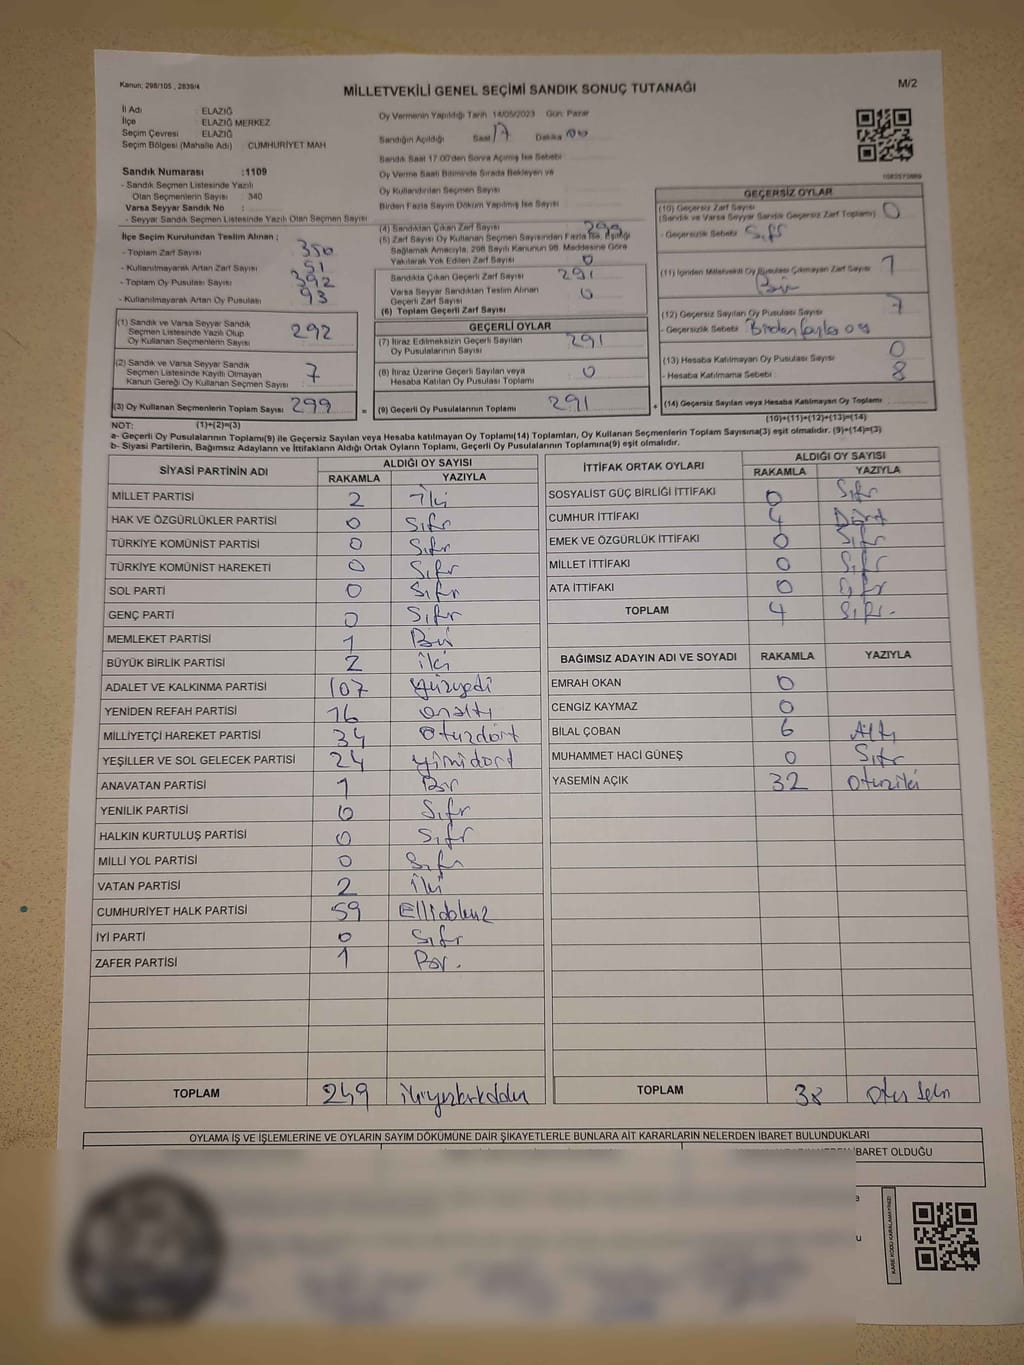 Kanun; 298/105 , 2839/4
MİLLETVEKİLİ GENEL SEÇİMİ SANDIK SONUÇ TUTANAĞI
M/2
İl Adı : ELAZIĞ
İlçe ELAZIĞ MERKEZ
Seçim Çevresi : ELAZIĞ
Seçim Bölgesi (Mahalle Adı) : CUMHURİYET MAH
Sandık Numarası :1109
- Sandık Seçmen Listesinde Yazılı
Olan Seçmenlerin Sayısı : 340
Varsa Seyyar Sandık No :
- Seyyar Sandık Seçmen Listesinde Yazılı Olan Seçmen Sayısı
Oy Vermenin Yapıldığı Tarih :14/05/2023 Gün: Pazar
Sandığın Açıldığı Saat 17 Dakika 00
Sandık Saat 17.00'den Sonra Açılmış İse Sebebi
Oy Verme Saati Bitiminde Sırada Bekleyen ve
Oy Kullandırılan Seçmen Sayısı
Birden Fazla Sayım Döküm Yapılmış İse Sayısı
İlçe Seçim Kurulundan Teslim Alınan ;
- Toplam Zarf Sayısı 350
- Kullanılmayarak Artan Zarf Sayısı : 51
- Toplam Oy Pusulası Sayısı : 392
- Kullanılmayarak Artan Oy Pusulası 93
(1) Sandık ve Varsa Seyyar Sandık
Seçmen Listesinde Yazılı Olup
Oy Kullanan Seçmenlerin Sayısı 292
(2) Sandık ve Varsa Seyyar Sandık
Seçmen Listesinde Kayıtlı Olmayan
Kanun Gereği Oy Kullanan Seçmen Sayısı 7
(3) Oy Kullanan Seçmenlerin Toplam Sayısı 299
(1)+(2)=(3)
(4) Sandıktan Çıkan Zarf Sayısı 299
(5) Zarf Sayısı Oy Kullanan Seçmen Sayısından Fazla İse, Eşitliği
Sağlamak Amacıyla, 298 Sayılı Kanunun 98. Maddesine Göre
Yakılarak Yok Edilen Zarf Sayısı 0
Sandıkta Çıkan Geçerli Zarf Sayısı 291
Varsa Seyyar Sandıktan Teslim Alınan
Geçerli Zarf Sayısı 0
(6) Toplam Geçerli Zarf Sayısı
GEÇERLİ OYLAR
(7) İtiraz Edilmeksizin Geçerli Sayılan
Oy Pusulalarının Sayısı 291
(8) İtiraz Üzerine Geçerli Sayılan veya
Hesaba Katılan Oy Pusulası Toplamı 0
= (9) Geçerli Oy Pusulalarının Toplamı 291
GEÇERSİZ OYLAR
(10) Geçersiz Zarf Sayısı
(Sandık ve Varsa Seyyar Sandık Geçersiz Zarf Toplamı) 0
- Geçersizlik Sebebi : Sıfır
(11) İçinden Milletvekili Oy Pusulası Çıkmayan Zarf Sayısı 1
Bir
(12) Geçersiz Sayılan Oy Pusulası Sayısı 7
- Geçersizlik Sebebi Birden fazla oy
(13) Hesaba Katılmayan Oy Pusulası Sayısı 0
- Hesaba Katılmama Sebebi : 8
+ (14) Geçersiz Sayılan veya Hesaba Katılmayan Oy Toplamı
(10)+(11)+(12)+(13)=(14)
NOT:
a- Geçerli Oy Pusulalarının Toplamı(9) ile Geçersiz Sayılan veya Hesaba katılmayan Oy Toplamı(14) Toplamları, Oy Kullanan Seçmenlerin Toplam Sayısına(3) eşit olmalıdır. (9)+(14)=(3)
b- Siyasi Partilerin, Bağımsız Adayların ve İttifakların Aldığı Ortak Oyların Toplamı, Geçerli Oy Pusulalarının Toplamına(9) eşit olmalıdır.
SİYASİ PARTİNİN ADI ALDIĞI OY SAYISI
RAKAMLA YAZIYLA
MİLLET PARTİSİ 2 İki
HAK VE ÖZGÜRLÜKLER PARTİSİ 0 Sıfır
TÜRKİYE KOMÜNİST PARTİSİ 0 Sıfır
TÜRKİYE KOMÜNİST HAREKETİ 0 Sıfır
SOL PARTİ 0 Sıfır
GENÇ PARTİ 0 Sıfır
MEMLEKET PARTİSİ 1 Bir
BÜYÜK BİRLİK PARTİSİ 2 iki
ADALET VE KALKINMA PARTİSİ 107 yüzyedi
YENİDEN REFAH PARTİSİ 16 onaltı
MİLLİYETÇİ HAREKET PARTİSİ 34 otuzdört
YEŞİLLER VE SOL GELECEK PARTİSİ 24 yirmidört
ANAVATAN PARTİSİ 1 Bir
YENİLİK PARTİSİ 0 Sıfır
HALKIN KURTULUŞ PARTİSİ 0 Sıfır
MİLLİ YOL PARTİSİ 0 Sıfır
VATAN PARTİSİ 2 iki
CUMHURİYET HALK PARTİSİ 59 Ellidokuz
İYİ PARTİ 0 Sıfır
ZAFER PARTİSİ 1 Bir.
TOPLAM 249 ikiyüzkırkdokuz
İTTİFAK ORTAK OYLARI ALDIĞI OY SAYISI
RAKAMLA YAZIYLA
SOSYALİST GÜÇ BİRLİĞİ İTTİFAKI 0 Sıfır
CUMHUR İTTİFAKI 4 Dört
EMEK VE ÖZGÜRLÜK İTTİFAKI 0 Sıfır
MİLLET İTTİFAKI 0 Sıfır
ATA İTTİFAKI 0 Sıfır
TOPLAM 4 Sıfır.
BAĞIMSIZ ADAYIN ADI VE SOYADI RAKAMLA YAZIYLA
EMRAH OKAN 0
CENGİZ KAYMAZ 0
BİLAL ÇOBAN 6 Altı
MUHAMMET HACİ GÜNEŞ 0 Sıfır
YASEMİN AÇIK 32 Otuziki
TOPLAM 38 Otuz Sekiz
OYLAMA İŞ VE İŞLEMLERİNE VE OYLARIN SAYIM DÖKÜMÜNE DAİR ŞİKAYETLERLE BUNLARA AİT KARARLARIN NELERDEN İBARET BULUNDUKLARI
İBARET OLDUĞU
KARE KODU KARALAMAYINIZ!